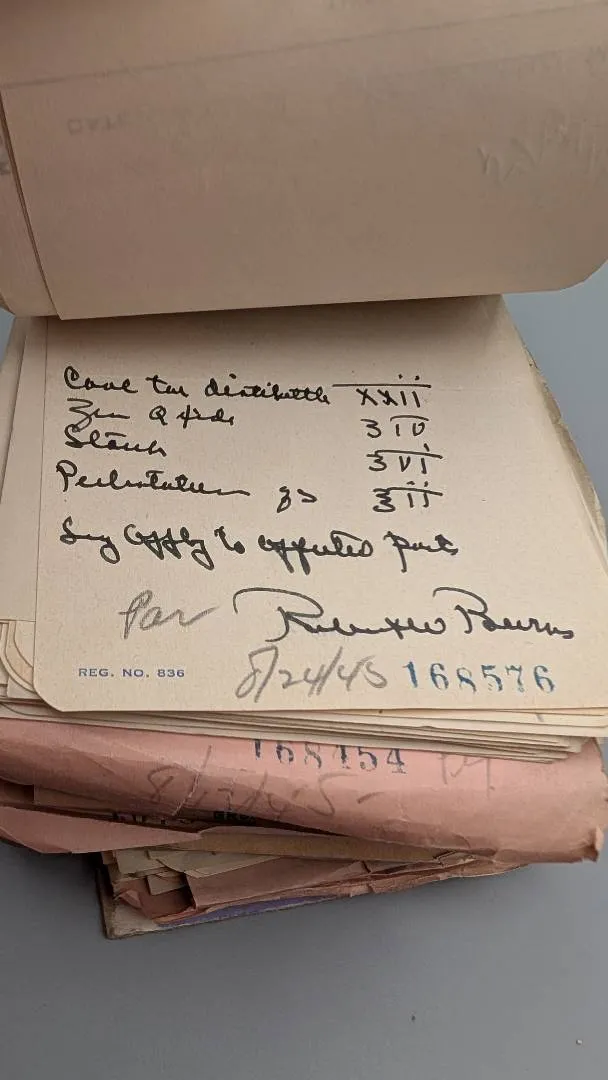 DATE
Coal tar distillate xxii
Zinc Oxide ʒ iv
Starch ʒ vi
Petrolatum qs ℥ ii
Sig Apply to affected parts
Par Robert W Burns
REG. NO. 836
8/24/45 168576
168454